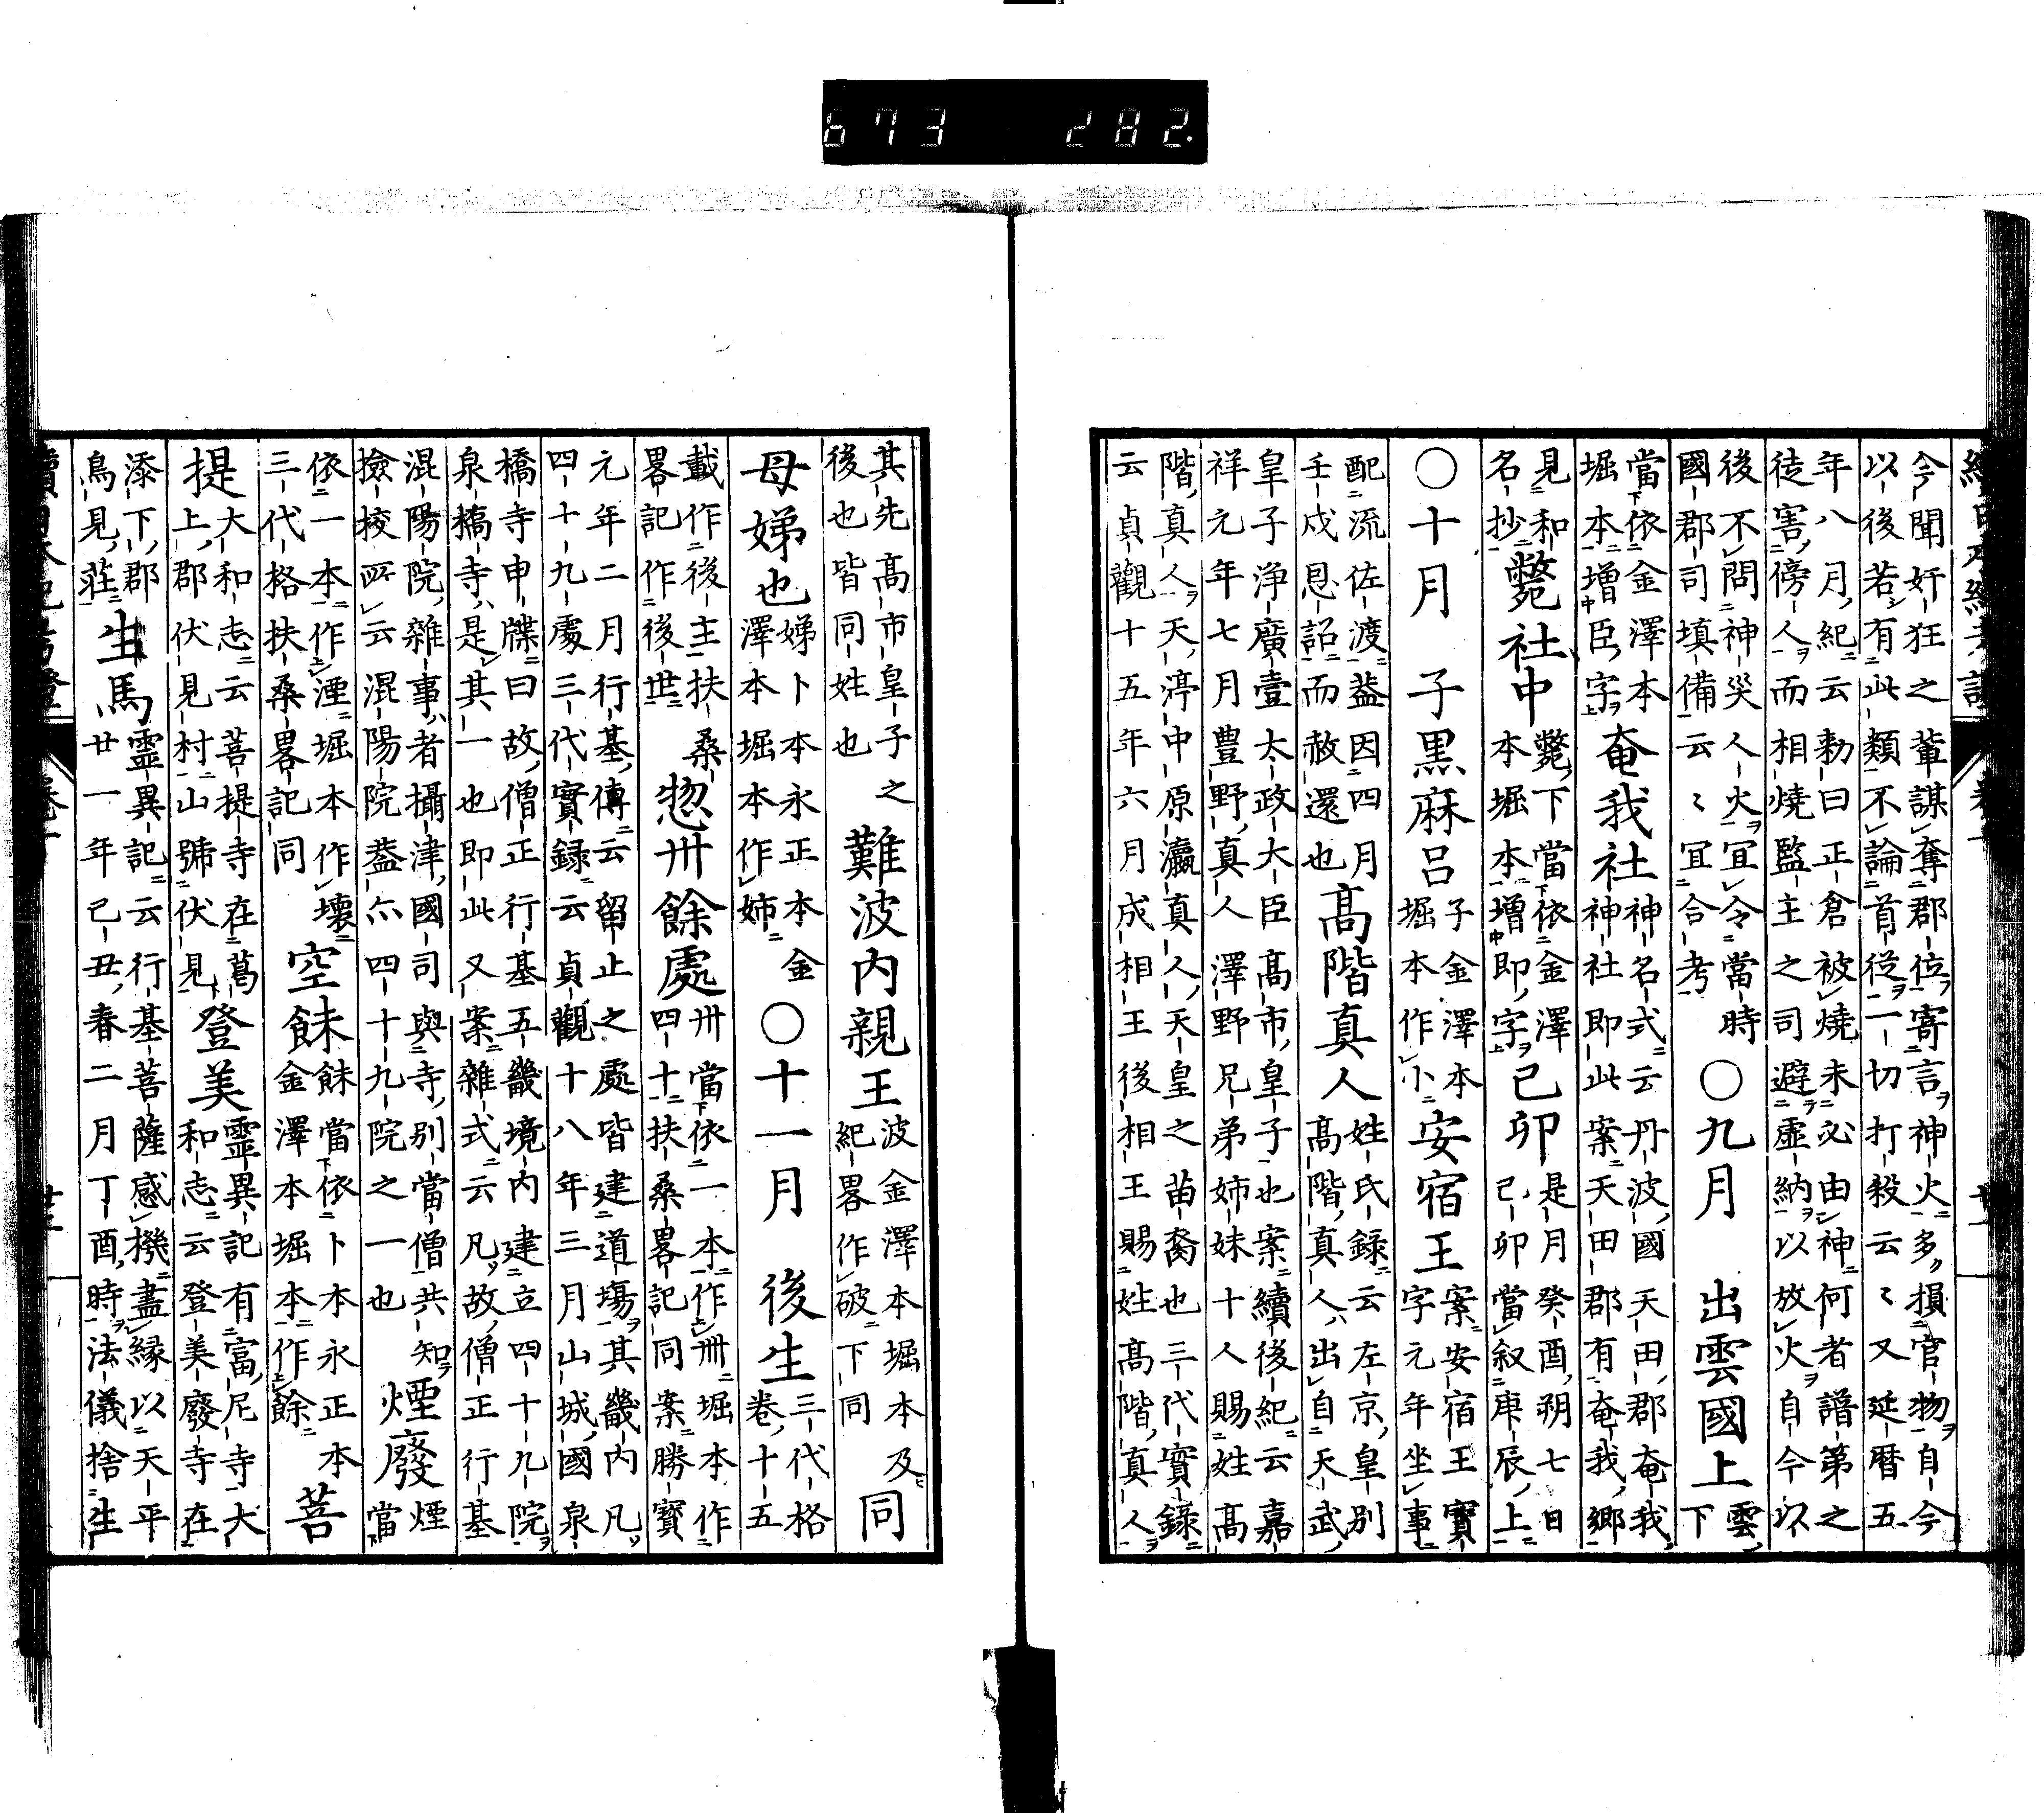 673 282.
今聞奸狂之輩謀奪郡位寄言神火多損官物自今
以後若有此類不論首從一切打殺云々又延暦五
年八月紀云勅曰正倉被燒未必由神何者譜第之
徒害傍人而相燒監主之司避虛納以放火自今以
後不問神災人火宜令當時
國郡司填備云々宜合考
○九月 出雲國上
雲下
當依金澤本
堀本增臣字
奄我社
神名式云丹波國天田郡奄我
神社即此案天田郡有奄我鄉
見和
名抄
斃社中
斃下當依金澤
本堀本增即字
己卯
是月癸酉朔七日
己卯當叙庚辰上
○十月 子黒麻呂
子金澤本
堀本作小
安宿王
案安宿王寳
字元年坐事
配流佐渡蓋因四月
壬戌恩詔而赦還也
高階真人
姓氏録云左京皇別
高階真人出自天武
皇子浄廣壹太政大臣高市皇子也案續後紀云嘉
祥元年七月豊野真人澤野兄弟姉妹十人賜姓高
階真人天渟中原瀛真人天皇之苗裔也三代實録
云貞觀十五年六月成相王後相王賜姓高階真人
其先高市皇子之
後也皆同姓也
難波内親王
波金澤本堀本及
紀畧作破下同
同
母娣也
娣卜本永正本金
澤本堀本作姉
○十一月 後生
三代格
卷十五
載作後主扶桑
畧記作後世
惣卅餘處
卅當依一本作卌堀本作
四十扶桑畧記同案勝寳
元年二月行基傳云留止之處皆建道場其畿内凡
四十九處三代實録云貞觀十八年三月山城國泉
橋寺申牒曰故僧正行基五畿境内建立四十九院
泉橋寺是其一也即此又案雜式云凡故僧正行基
混陽院雜事者攝津國司與寺別當僧共知
撿挍所云混陽院蓋亦四十九院之一也
煙廢
煙當
依一本作湮堀本作壊
三代格扶桑畧記同
空餗
餗當依卜本永正本
金澤本堀本作餘
菩
提
大和志云菩提寺在葛
上郡伏見村山號伏見
登美
靈異記有富尼寺大
和志云登美廢寺在
添下郡
鳥見莊
生馬
靈異記云行基菩薩感機盡縁以天平
廿一年己丑春二月丁酉時法儀捨生